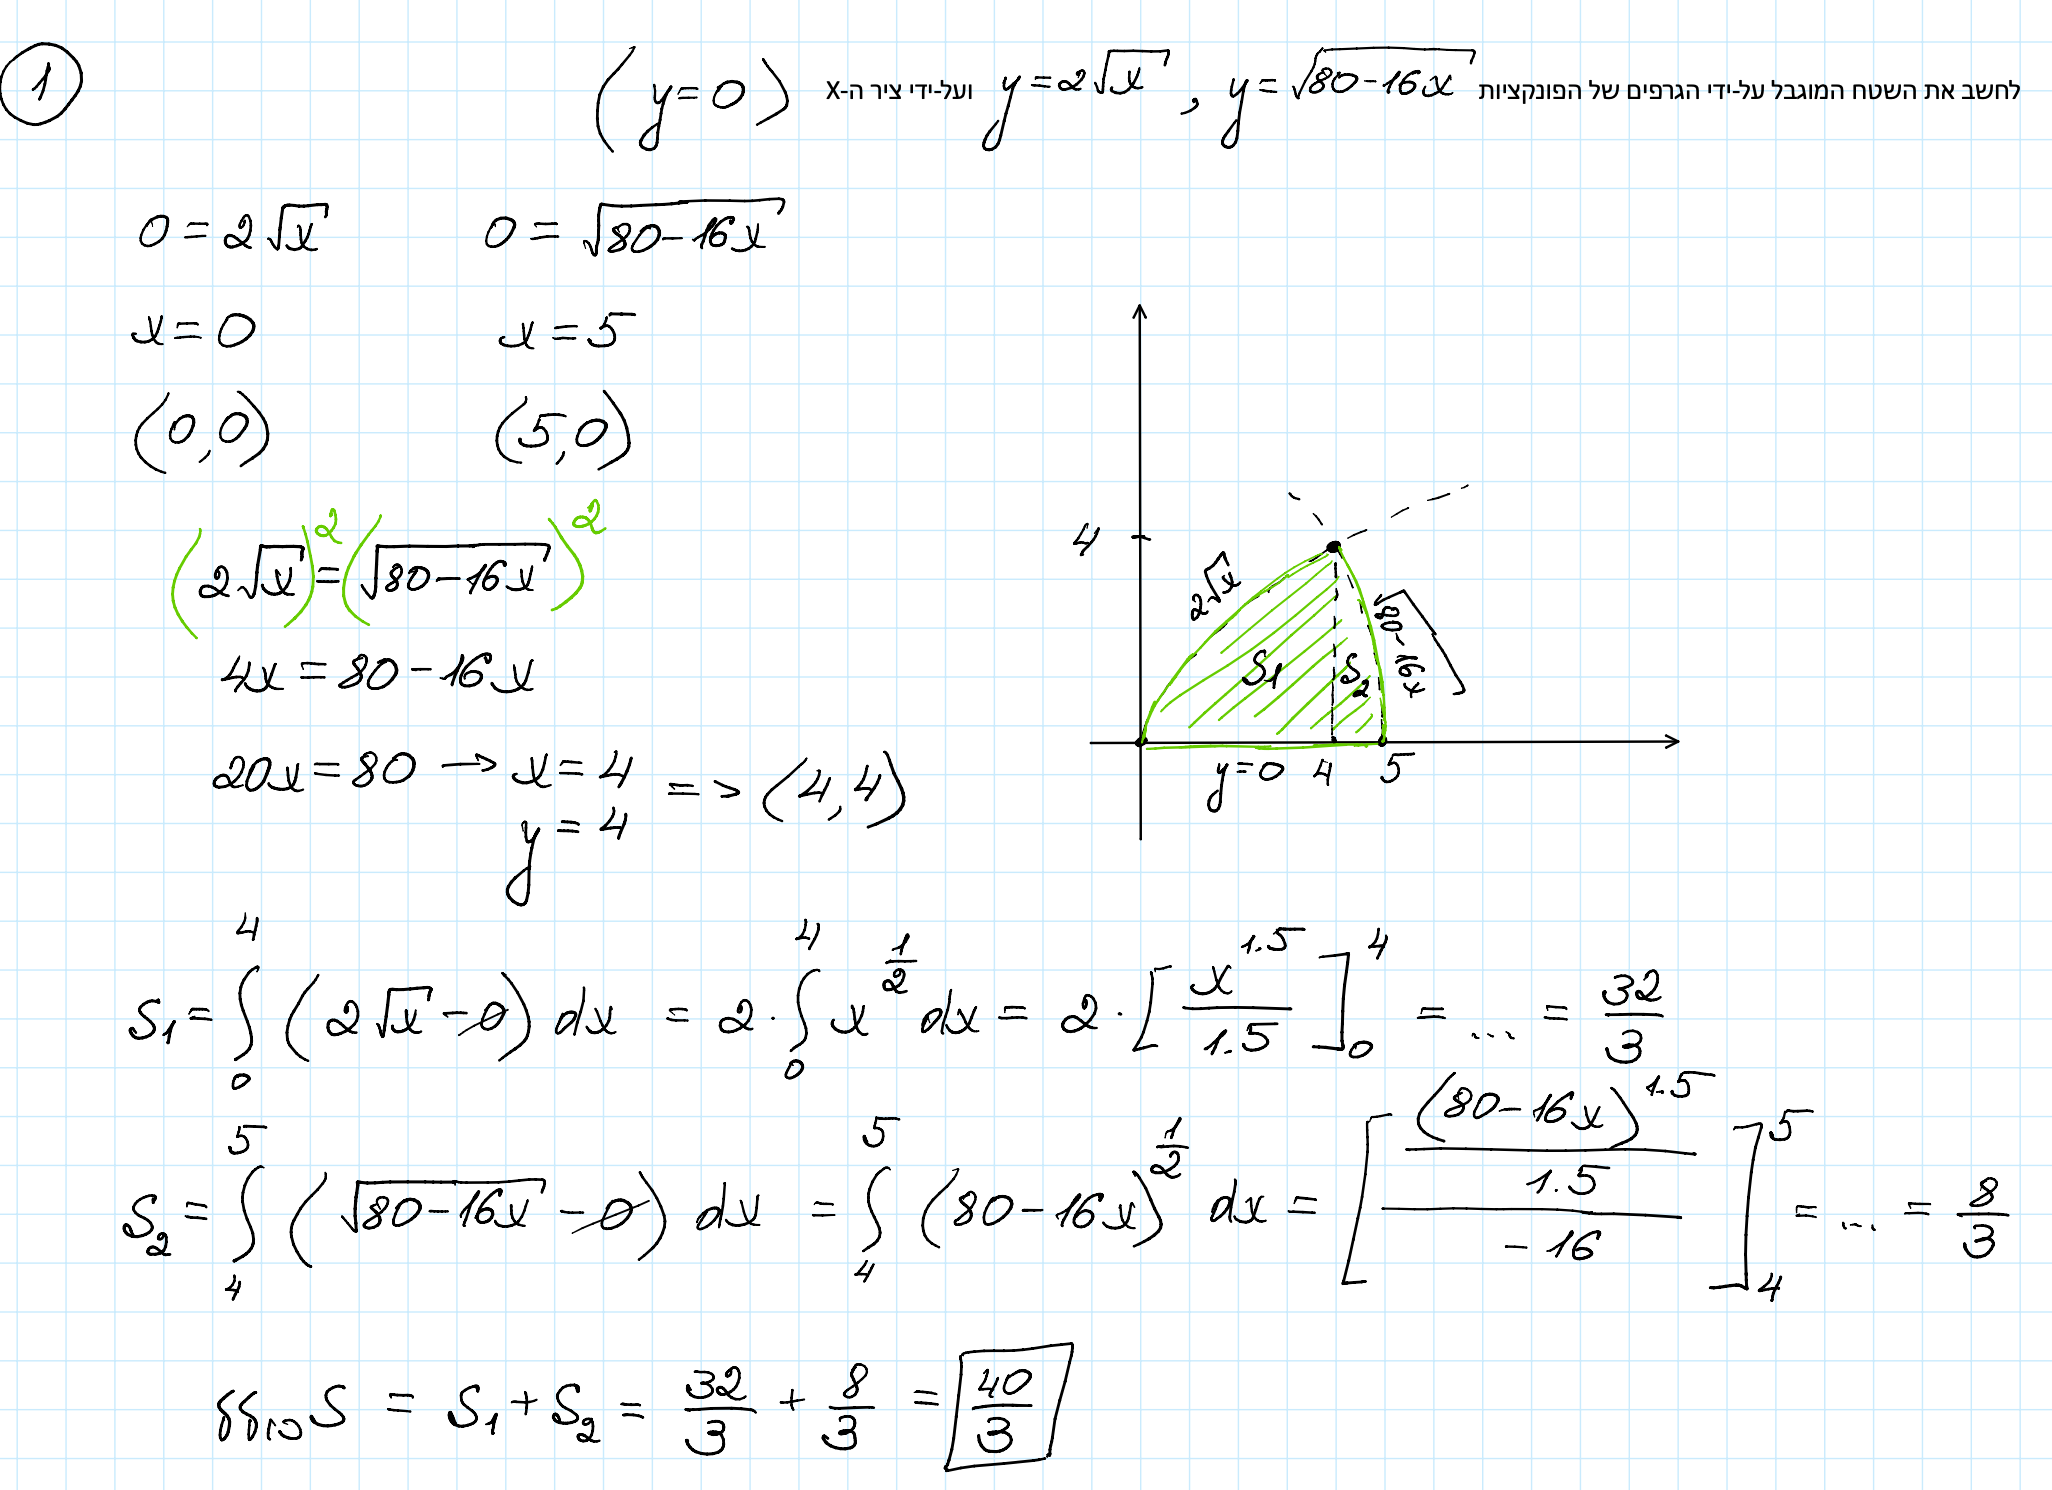 1
לחשב את השטח המוגבל על-ידי הגרפים של הפונקציות y = √(80-16x) , y = 2√x ועל-ידי ציר ה-X (y=0)
0 = 2√x    0 = √(80-16x)
x = 0    x = 5
(0,0)    (5,0)
(2√x)² = (√(80-16x))²
4x = 80-16x
20x = 80 → x = 4
y = 4 => (4,4)
4
2√x
√(80-16x)
S1 S2
y=0 4 5
S1 = ∫₀⁴ (2√x - 0) dx = 2·∫₀⁴ x^(1/2) dx = 2·[x^1.5 / 1.5]₀⁴ = ... = 32/3
S2 = ∫₄⁵ (√(80-16x) - 0) dx = ∫₄⁵ (80-16x)^(1/2) dx = [((80-16x)^1.5 / 1.5) / -16]₄⁵ = ... = 8/3
S = S1 + S2 = 32/3 + 8/3 = 40/3